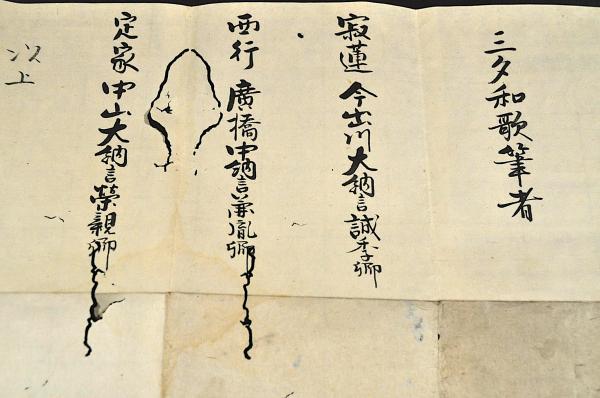 三夕和歌筆者
寂蓮 今出川大納言誠季卿
西行 廣橋中納言兼胤卿
定家 中山大納言榮親卿
以上